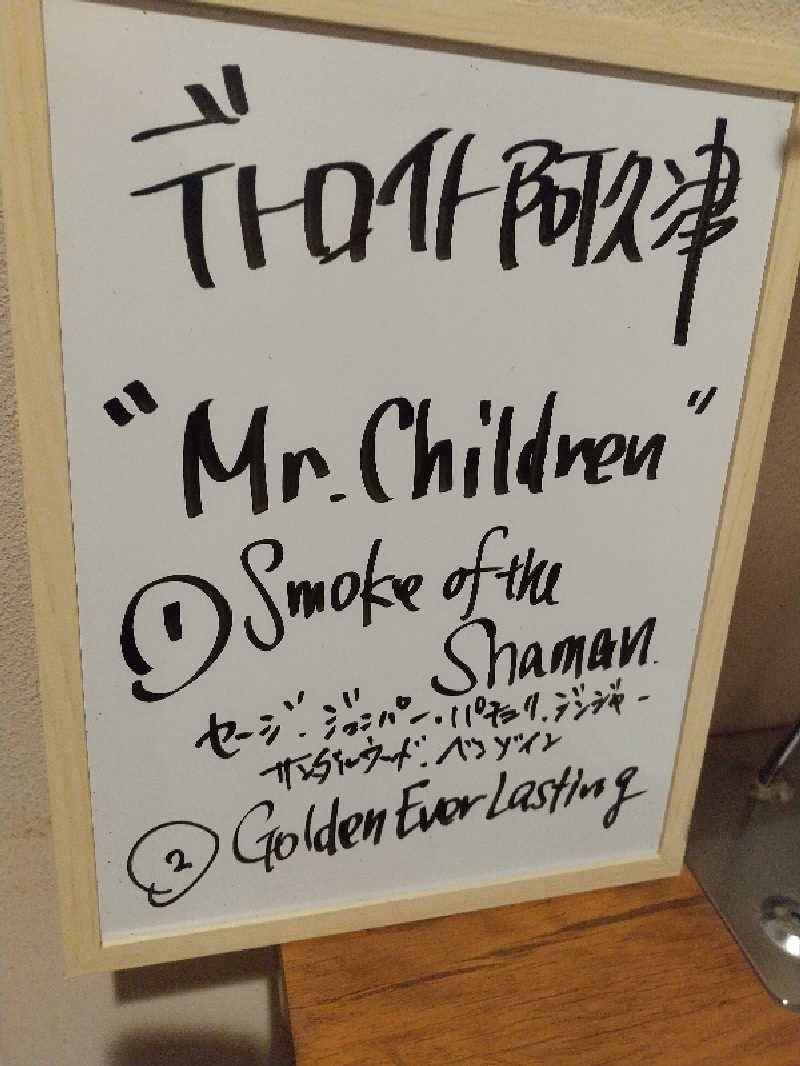 デトロイト阿久津
"Mr. Children"
① Smoke of the
Shaman.
セージ・ジュニパー・パチュリ・ジンジャー
サンダルウッド・ベンゾイン
② Golden Ever Lasting